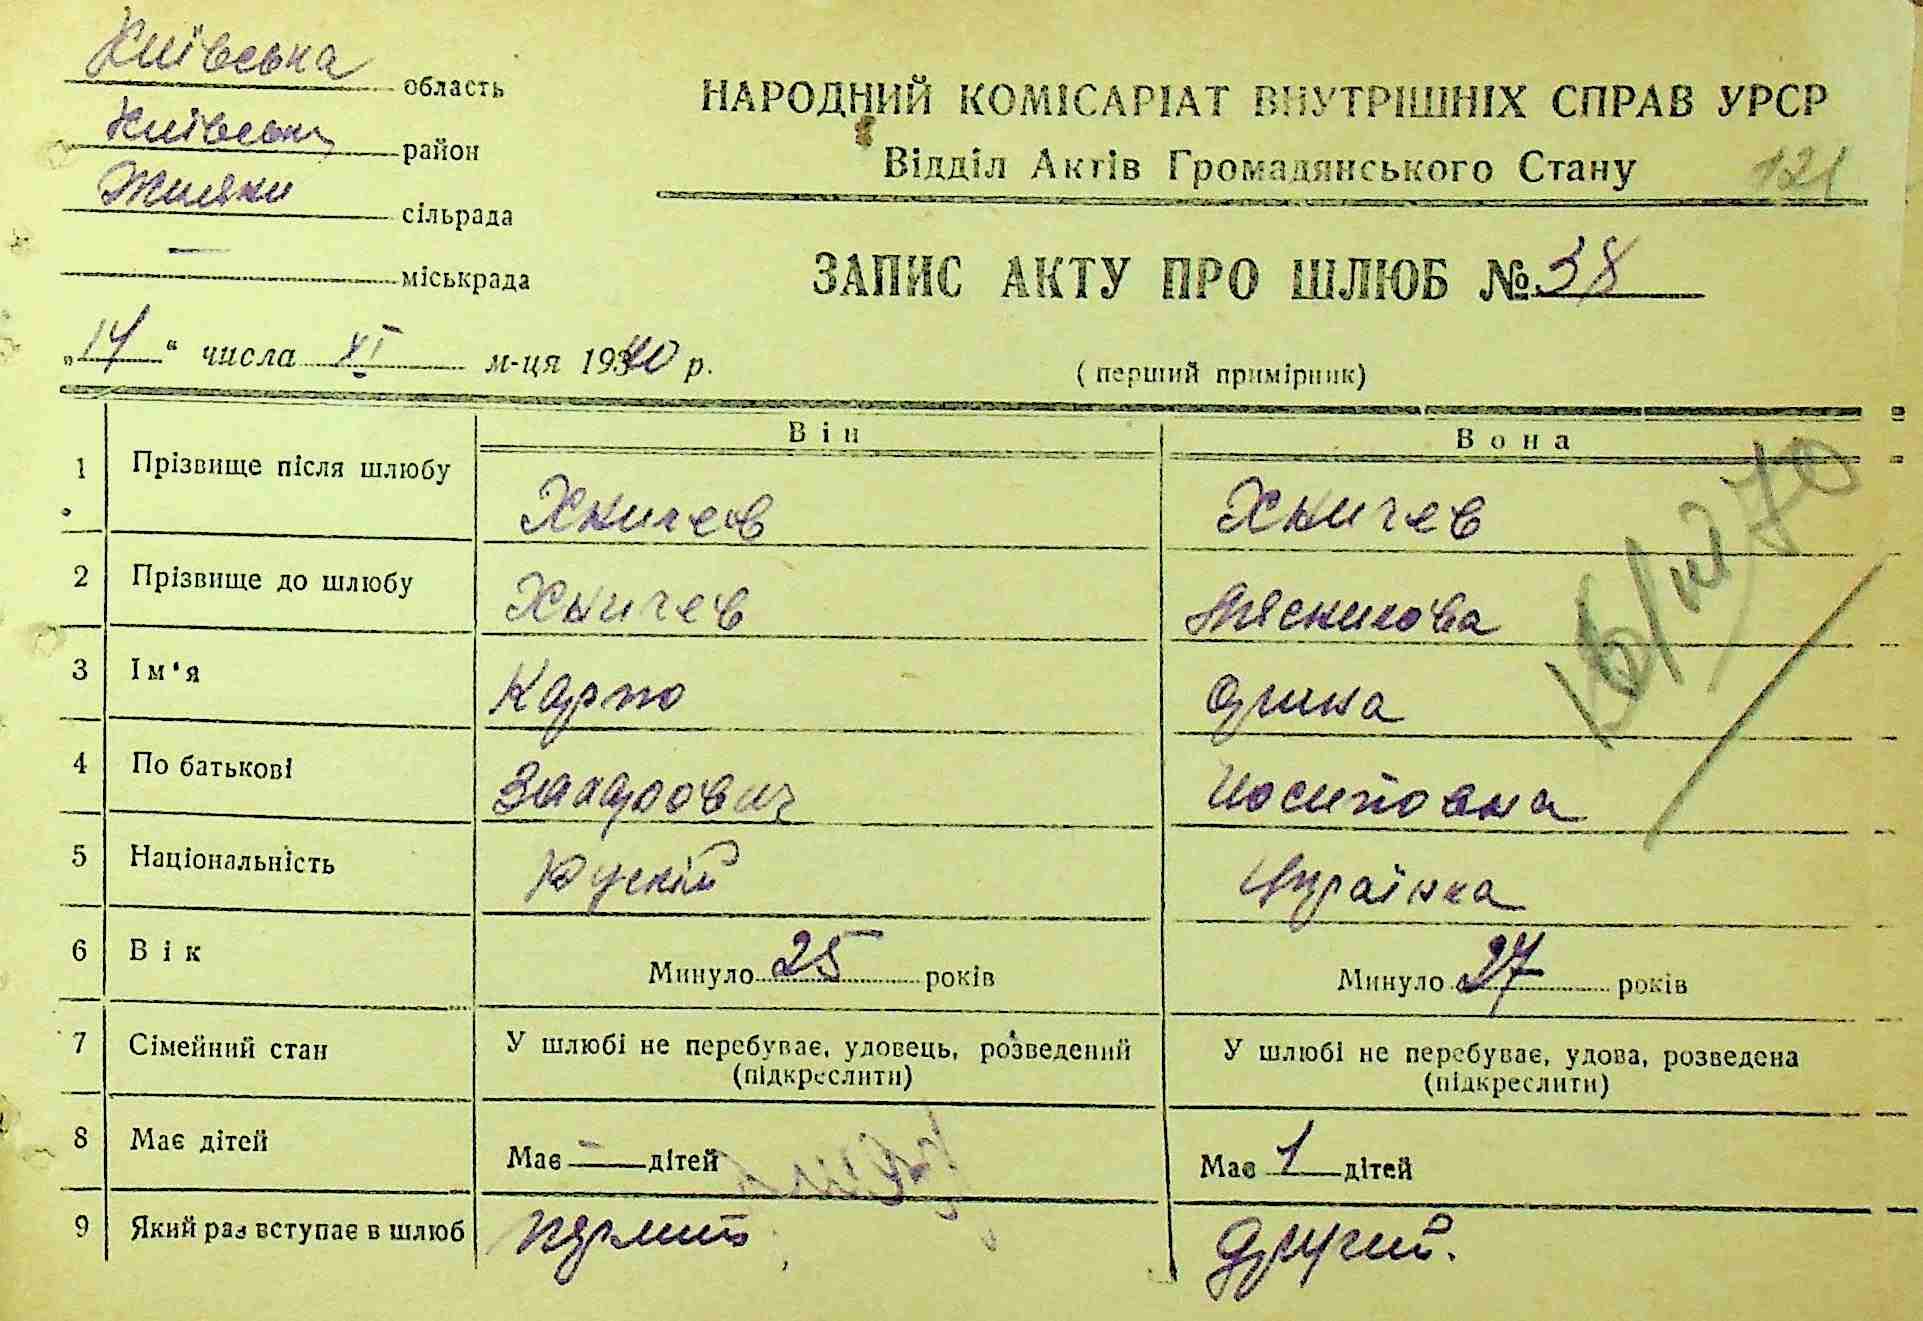 Київська область
Київський район
Жиляни сільрада
— міськрада
НАРОДНИЙ КОМІСАРІАТ ВНУТРІШНІХ СПРАВ УРСР
Відділ Актів Громадянського Стану
121
ЗАПИС АКТУ ПРО ШЛЮБ № 38
„14“ числа XI м-ця 1940 р.
(перший примірник)
Він Вона
1 Прізвище після шлюбу Хничев Хничев
2 Прізвище до шлюбу Хничев Мясникова
3 Ім'я Карпо Орина
4 По батькові Захарович Иосиповна
5 Національність Руский Українка
6 Вік Минуло 25 років Минуло 27 років
7 Сімейний стан У шлюбі не перебуває, удовець, розведений (підкреслити) У шлюбі не перебуває, удова, розведена (підкреслити)
8 Має дітей Має — дітей Має 1 дітей
9 Який раз вступає в шлюб Перший Другий.
16/III 70